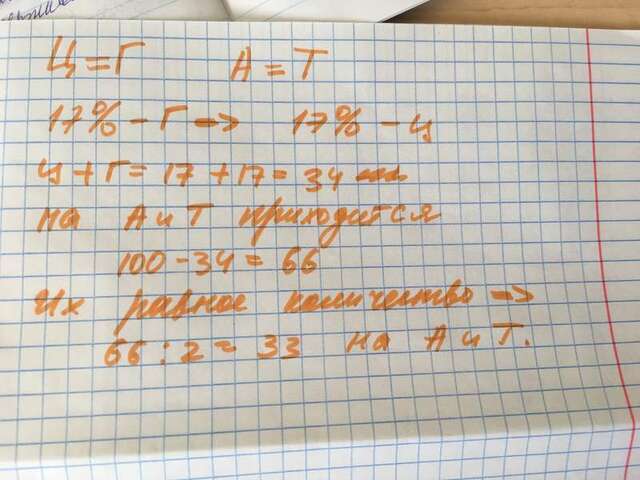 Ц=Г А=Т
17% - Г => 17% - Ц
Ц+Г= 17 +17= 34
на А и Т приходится
100-34= 66
Их равное количество =>
66 : 2 = 33 на А и Т.